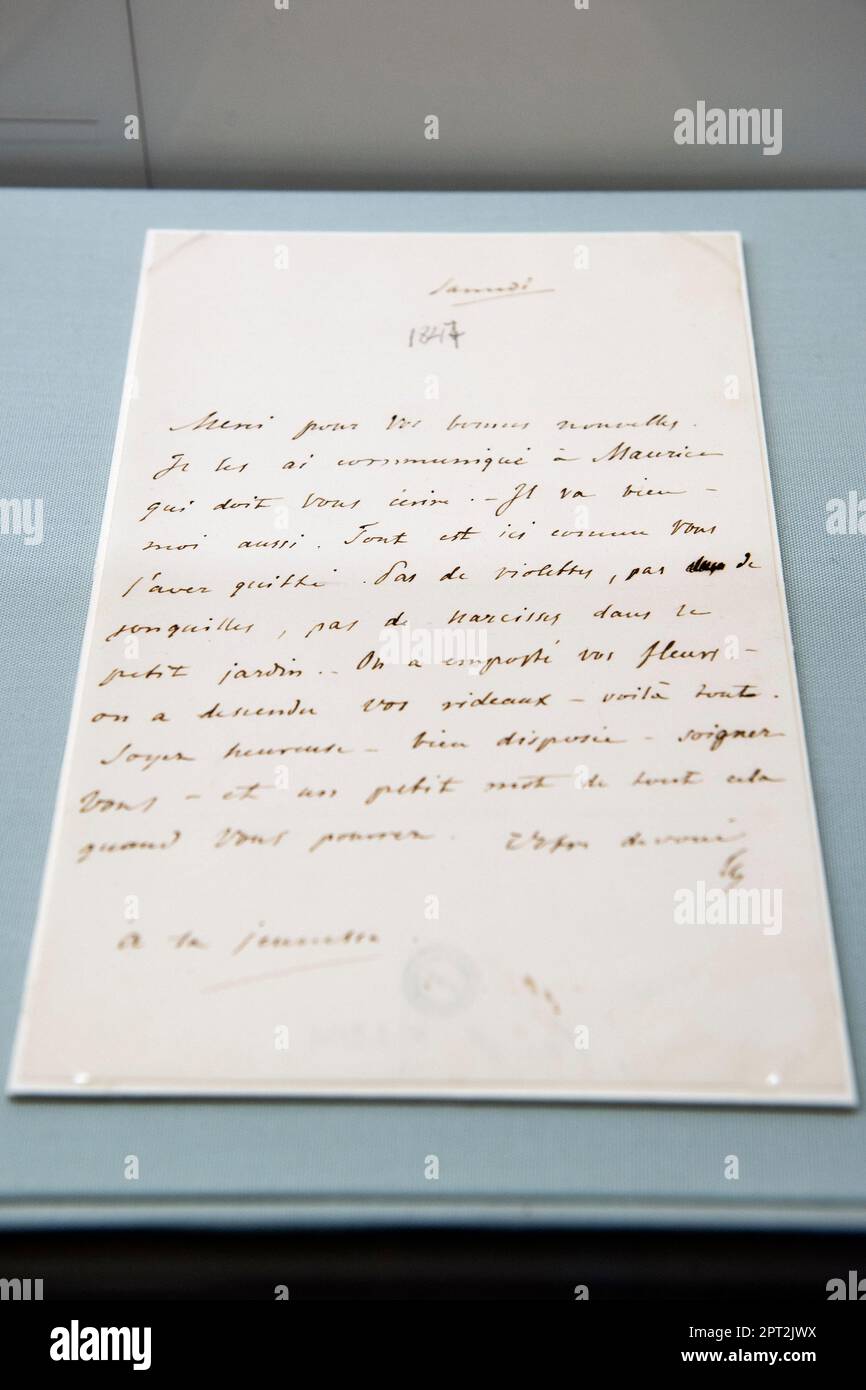 Samedi
1847
Merci pour vos bonnes nouvelles.
Je les ai communiqué à Maurice
qui doit vous écrire. – Il va bien –
moi aussi. Tout est ici comme vous
l'avez quitté. Pas de violettes, pas de
jonquilles, pas de narcisses dans le
petit jardin. – On a emporté vos fleurs –
on a descendu vos rideaux – voilà tout.
Soyez heureuse – bien disposée – soignez
vous – et un petit mot de tout cela
quand vous pourrez. Votre devoué
Ch
à la jeunesse.
alamy
alamy
alamy
alamy
alamy
a
Image ID: 2PT2JWX
www.alamy.com